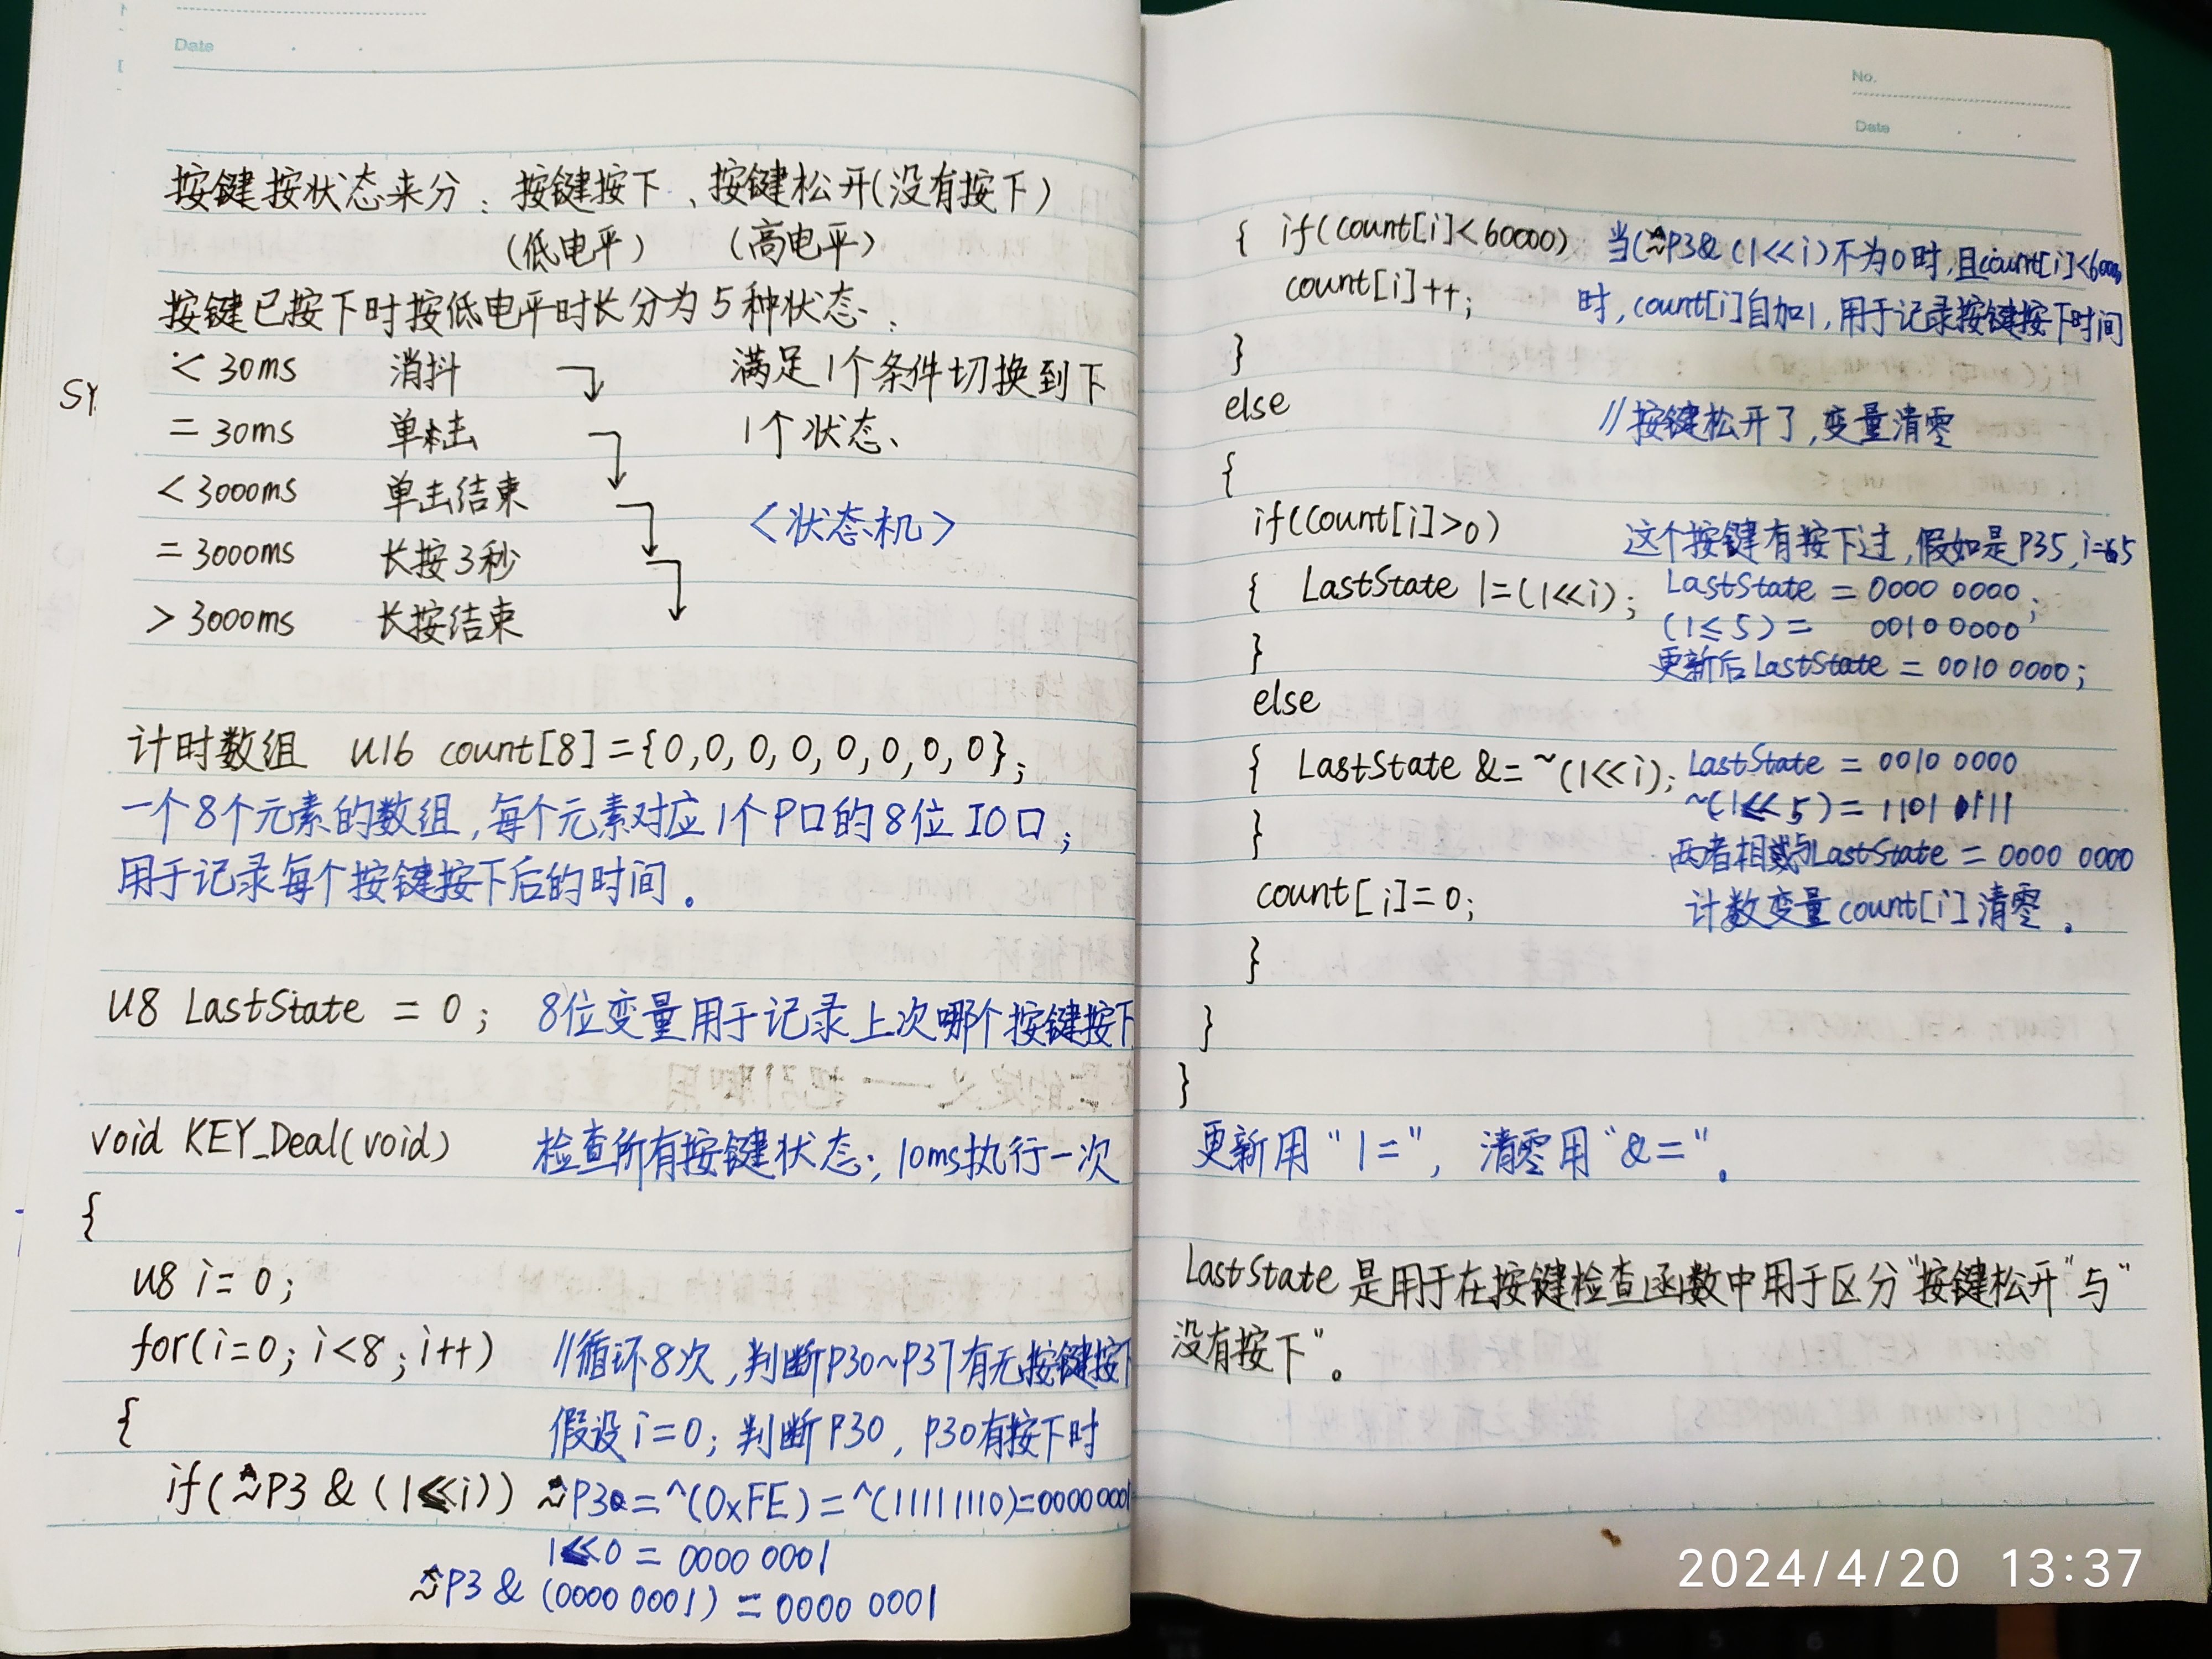 Date
按键按状态来分：按键按下、按键松开(没有按下)
(低电平) (高电平)
按键已按下时按低电平时长分为5种状态：
< 30ms 消抖 满足1个条件切换到下
= 30ms 单击 1个状态、
< 3000ms 单击结束 <状态机>
= 3000ms 长按3秒
> 3000ms 长按结束
SY
计时数组 u16 count[8]={0,0,0,0,0,0,0,0};
一个8个元素的数组,每个元素对应1个P口的8位IO口;
用于记录每个按键按下后的时间。
u8 LastState = 0; 8位变量用于记录上次哪个按键按下
void KEY_Deal(void) 检查所有按键状态;10ms执行一次
{
u8 i=0;
for(i=0;i<8;i++) //循环8次,判断P30~P37有无按键按下
{ 假设i=0;判断P30,P30有按下时
if(~P3 & (1<<i)) ~P3=^(0xFE)=^(11111110)=00000001
1<<0 = 0000 0001
~P3 & (0000 0001) = 0000 0001
No.
Date
{ if(count[i]<60000) 当(~P3&(1<<i)不为0时,且count[i]<60000
count[i]++; 时,count[i]自加1,用于记录按键按下时间
}
else //按键松开了,变量清零
{
if(count[i]>0) 这个按键有按下过,假如是P35,i=5
{ LastState |=(1<<i); LastState = 0000 0000;
(1≤5)= 0010 0000
} 更新后LastState = 0010 0000;
else
{ LastState &= ~(1<<i); LastState = 0010 0000
~(1<<5)=1101 1111
} 两者相与LastState = 0000 0000
count[i]=0; 计数变量count[i]清零。
}
}
}
更新用"|=", 清零用"&="。
LastState 是用于在按键检查函数中用于区分"按键松开"与"
没有按下"。
2024/4/20 13:37